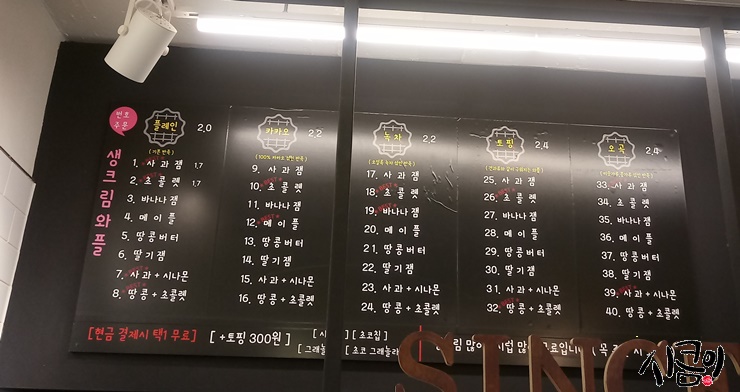 번호
주문
생크림와플
플레인 2,0
(기본 반죽)
1. 사과잼 1,7
2. 초콜렛 1,7
3. 바나나잼
4. 메이플
5. 땅콩버터
6. 딸기잼
7. 사과+시나몬
8. 땅콩+초콜렛
카카오 2,2
9. 사과잼
10. 초콜렛
11. 바나나잼
12. 메이플
13. 땅콩버터
14. 딸기잼
15. 사과+시나몬
16. 땅콩+초콜렛
녹차 2,2
17. 사과잼
18. 초콜렛
19. 바나나잼
20. 메이플
21. 땅콩버터
22. 딸기잼
23. 사과+시나몬
24. 땅콩+초콜렛
토핑 2,4
25. 사과잼
26. 초콜렛
27. 바나나잼
28. 메이플
29. 땅콩버터
30. 딸기잼
31. 사과+시나몬
32. 땅콩+초콜렛
오곡 2,4
33. 사과잼
34. 초콜렛
35. 바나나잼
36. 메이플
37. 땅콩버터
38. 딸기잼
39. 사과+시나몬
40. 땅콩+초콜렛
[현금 결제시 택1 무료] [+토핑 300원] [초코칩]
SINCE
시큼이